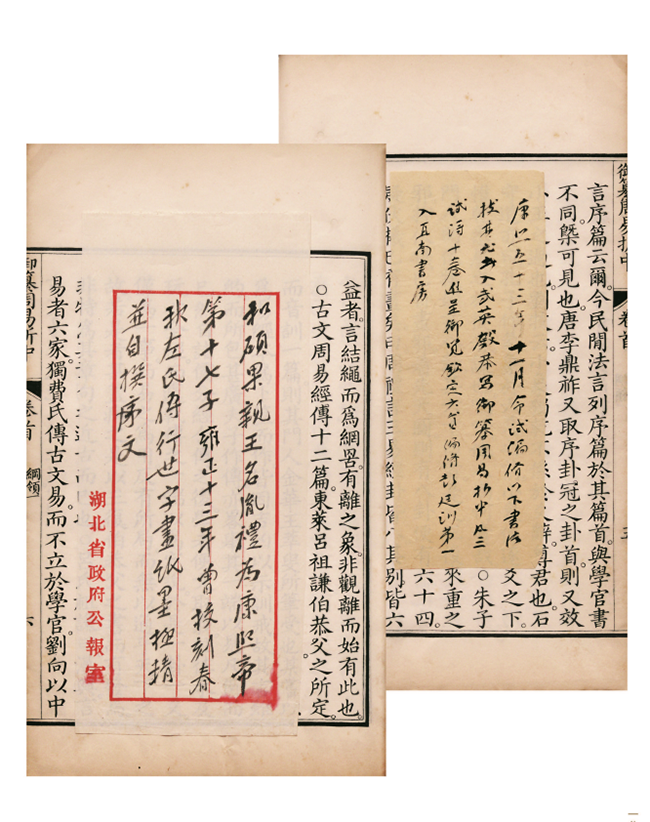 御纂周易折中 卷首
言序篇云爾。今民間法言列序篇於其篇首。與學官書
不同。槩可見也。唐李鼎祚又取序卦冠之卦首。則又效
爻之下。
尊君也。石
○朱子
來重之
六十四
其別皆六
康熙五十三年十一月命試以下書法
拔其尤者入武英殿恭寫御纂周易折中
試詩十卷進呈御覽欽定彭廷訓第一
入直南書房
益者。言結繩而爲網罟。有離之象。非觀離而始有此也。
○古文周易經傳十二篇。東萊呂祖謙伯恭父之所定。
和碩果親王名胤禮為康熙帝
第十七子雍正十三年曾校刻春
秋左氏傳行世字畫紙墨極精
並自撰序文
湖北省政府公報室
易者六家。獨費氏傳古文易。而不立於學官。劉向以中
御纂周易折中 卷首 綱領一 六